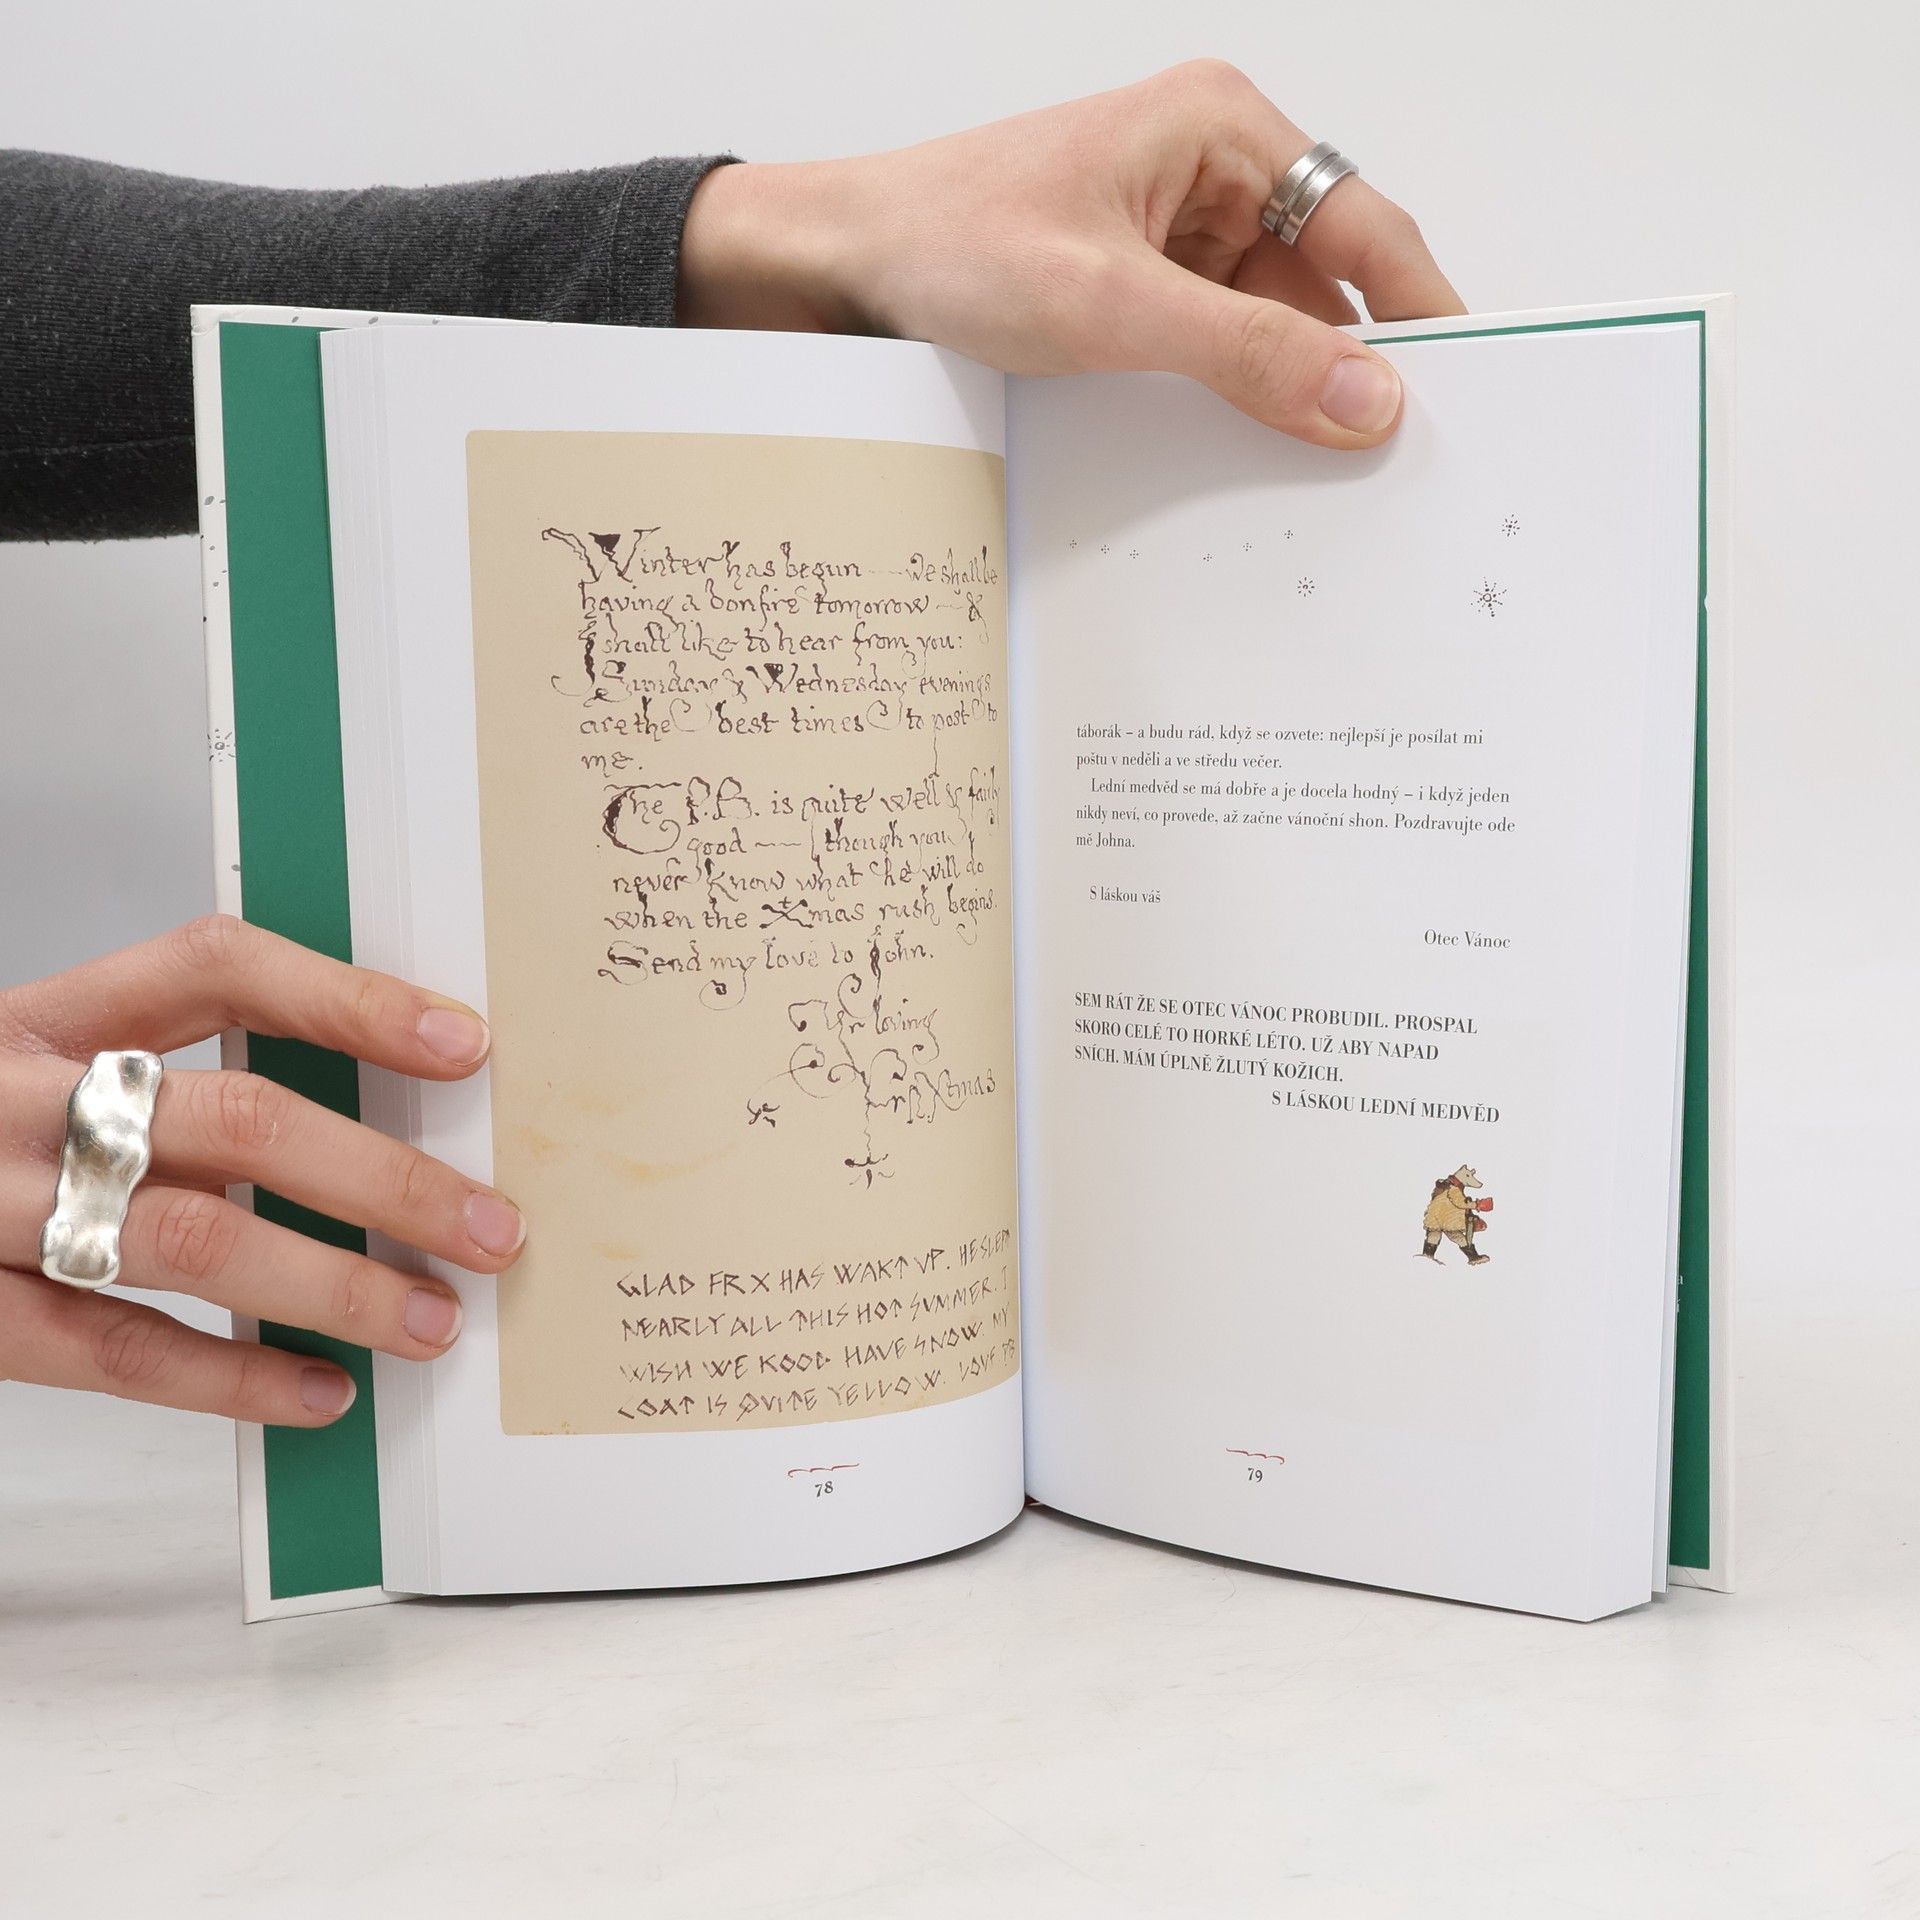 Winter has begun — we shall be
having a bonfire tomorrow — &
I shall like to hear from you:
Sunday & Wednesday evenings
are the best times to post to
me.
The P.B. is quite well & fairly
good — (though you
never know what he will do
when the Xmas rush begins.
Send my love to John.
Yr loving
Fr. Xtmas
GLAD FR X HAS WAKT UP. HE SLEPT
NEARLY ALL THIS HOT SUMMER. I
WISH WE KOOD HAVE SNOW. MY
COAT IS QUITE YELLOW. LOVE PB
78
táborák – a budu rád, když se ozvete: nejlepší je posílat mi
poštu v neděli a ve středu večer.
Lední medvěd se má dobře a je docela hodný – i když jeden
nikdy neví, co provede, až začne vánoční shon. Pozdravujte ode
mě Johna.
S láskou váš
Otec Vánoc
SEM RÁT ŽE SE OTEC VÁNOC PROBUDIL. PROSPAL
SKORO CELÉ TO HORKÉ LÉTO. UŽ ABY NAPAD
SNÍCH. MÁM ÚPLNĚ ŽLUTÝ KOŽICH.
S LÁSKOU LEDNÍ MEDVĚD
79